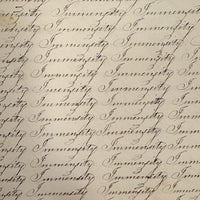 Immensity Immensity
Immensity Immensity Immensity
Immensity Immensity Immensity
Immensity Immensity Immensity
Immensity Immensity Immensity
Immensity Immensity Immensity
Immensity Immensity Immensity
Immensity Immensity Immensity
Immensity Immensity Immensity
Immensity Immensity Immensity
Immensity Immensity Immensity
Immensity Immensity